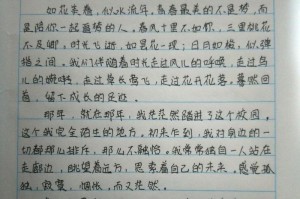 如花美眷,似水流年,青春最美的不是梦,而
是陪你一起画梦的人。春风十里不如你,三里桃花
不及卿,时光飞逝,如昙花一现;日月如梭,似弹指
之间。我们伴随着时光走过风的呼唤,走过鸟
儿的啼啭,走过草长莺飞,走过花开花落,蓦然回
首,留下成长的足迹。
那年,就在那年,我茫茫然踏进了这个校园,
这个我完全陌生的地方。初来乍到,我对身边的一
切都那么排斥,那么不融洽。我常常独自一人站在
走廊边,眺望着远方,思索着自己的未来,感觉孤
独,寂寞,惆怅,而又茫然。